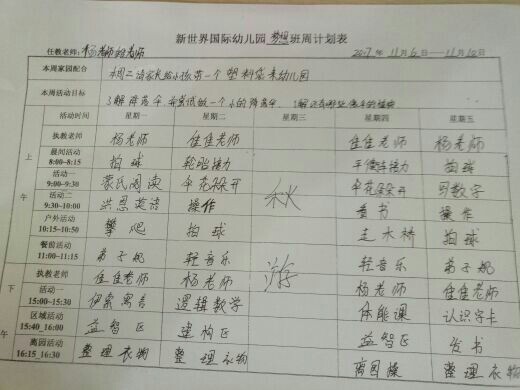 新世界国际幼儿园 梦想 班周计划表
任教老师: 杨老师 佳老师 2017年 11月6日—11月10日
本周家园配合 本周二请家长给小孩带一个塑料袋来幼儿园
本周活动目标 了解降落伞,并尝试做一个小的降落伞。了解还有哪些
活动时间 星期一 星期二 星期三 星期四 星期五
上午
执教老师 杨老师 佳佳老师 佳佳老师 杨老师
晨间活动 8:00~8:15 拍球 轮胎接力 平衡车接力 拍球
活动一 9:00~9:30 蒙氏阅读 伞花朵朵开 秋 伞花朵朵开 写数字
活动二 9:30~10:00 洪恩英语 操作 看书 操作
户外活动 10:15~10:50 攀爬 拍球 走木桥 拍球
餐前活动 11:00~11:15 弟子规 轻音乐 游 轻音乐 弟子规
下午
执教老师 佳佳老师 杨老师 杨老师 佳佳老师
活动一 15:00~15:30 伊索寓言 逻辑数学 体能课 认识字卡
区域活动 15:40_16:00 益智区 建构区 益智区 发书
离园活动 16:15_16:30 整理衣物 整理衣物 离园操 整理衣物